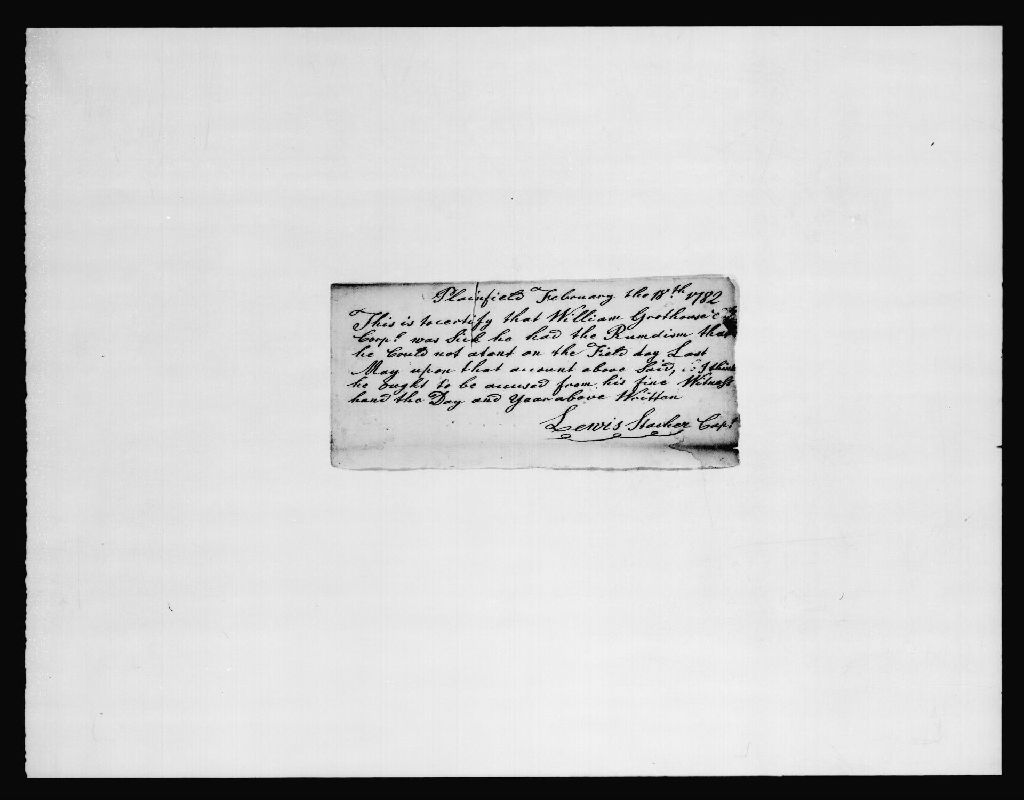 Plainfield February the 18th 1782
This is to certify that William Grothouse
Corpl was Sick he had the Rumdism that
he Could not atent on the Field day Last
May upon that account above Said, I think
he ought to be accused from his fine Witness
hand the Day and Year above Written
Lewis Stacher Capt